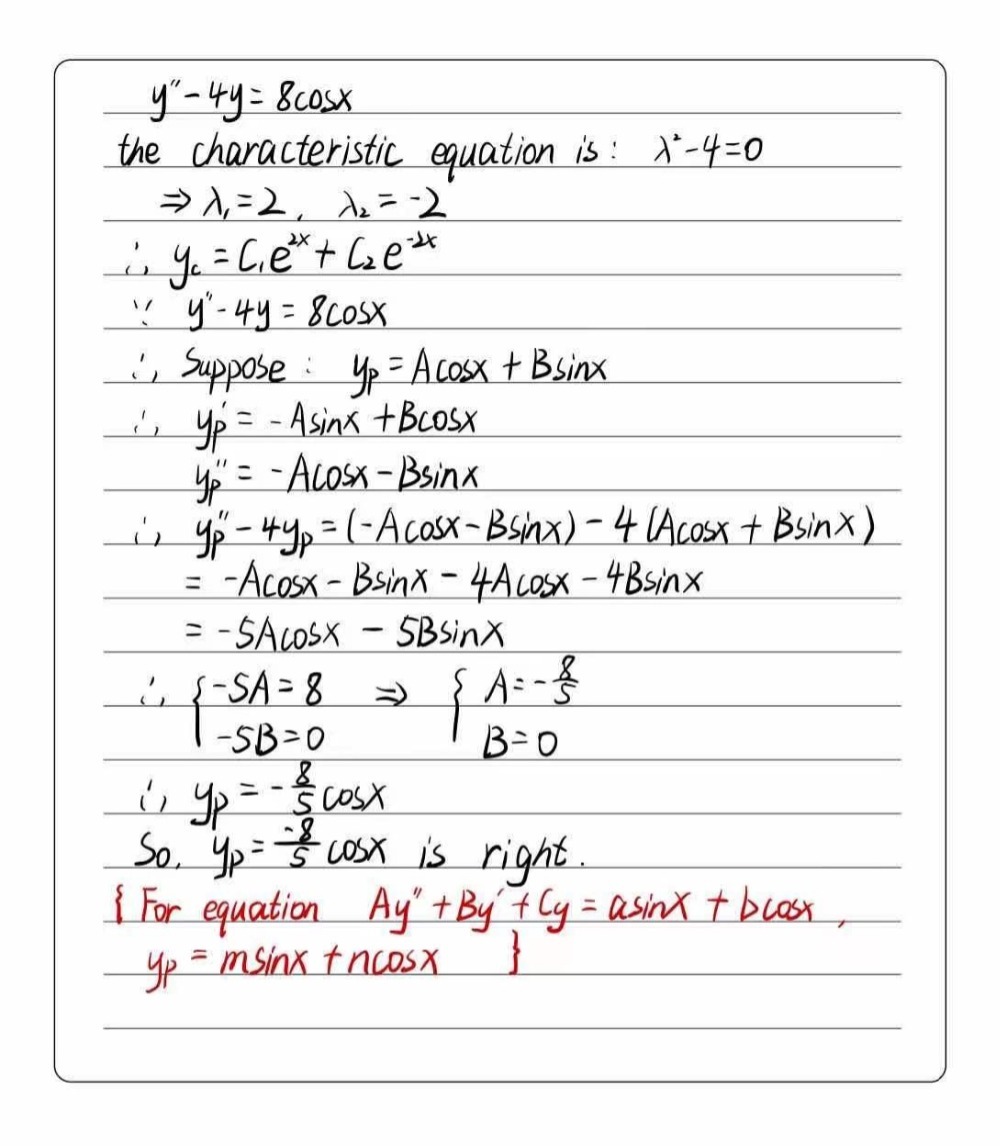 y″-4y=8cosx
the characteristic equation is: λ²-4=0
⇒λ₁=2, λ₂=-2
∴ y_c=C₁e^{2x}+C₂e^{-2x}
∵ y″-4y=8cosx
∴ Suppose: y_p=Acosx+Bsinx
∴ y_p′=-Asinx+Bcosx
y_p″=-Acosx-Bsinx
∴ y_p″-4y_p=(-Acosx-Bsinx)-4(Acosx+Bsinx)
=-Acosx-Bsinx-4Acosx-4Bsinx
=-5Acosx-5Bsinx
∴ {-5A=8 ⇒ {A=-8/5
-5B=0 B=0
∴ y_p=-8/5cosx
So, y_p=-8/5cosx is right.
{For equation Ay″+By′+Cy=asinx+bcosx,
y_p=msinx+ncosx }